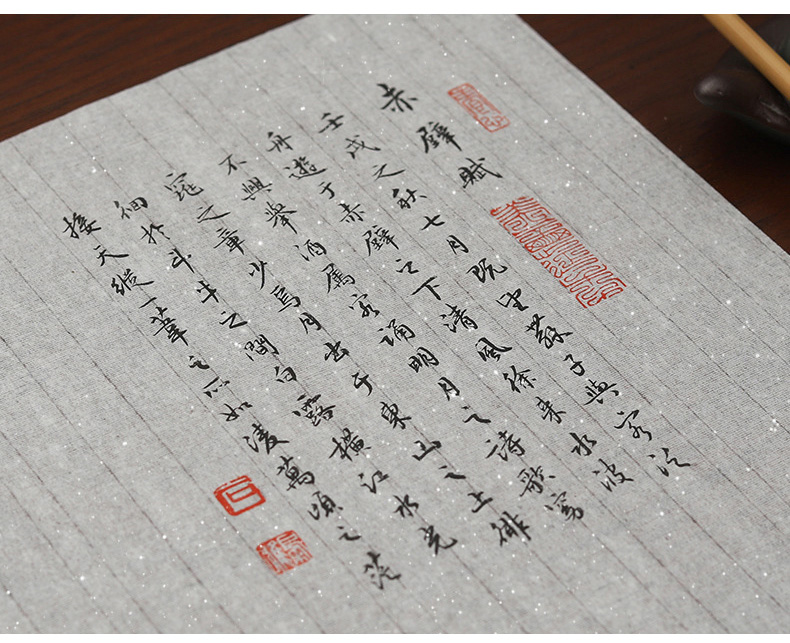 赤壁賦
壬戌之秋七月既望蘇子與客泛
舟遊于赤壁之下清風徐来水波
不興舉酒属客誦明月之詩歌窈
窕之章少焉月出于東山之上徘
徊於斗牛之間白露橫江水光
接天縱一葦之所如凌萬頃之茫